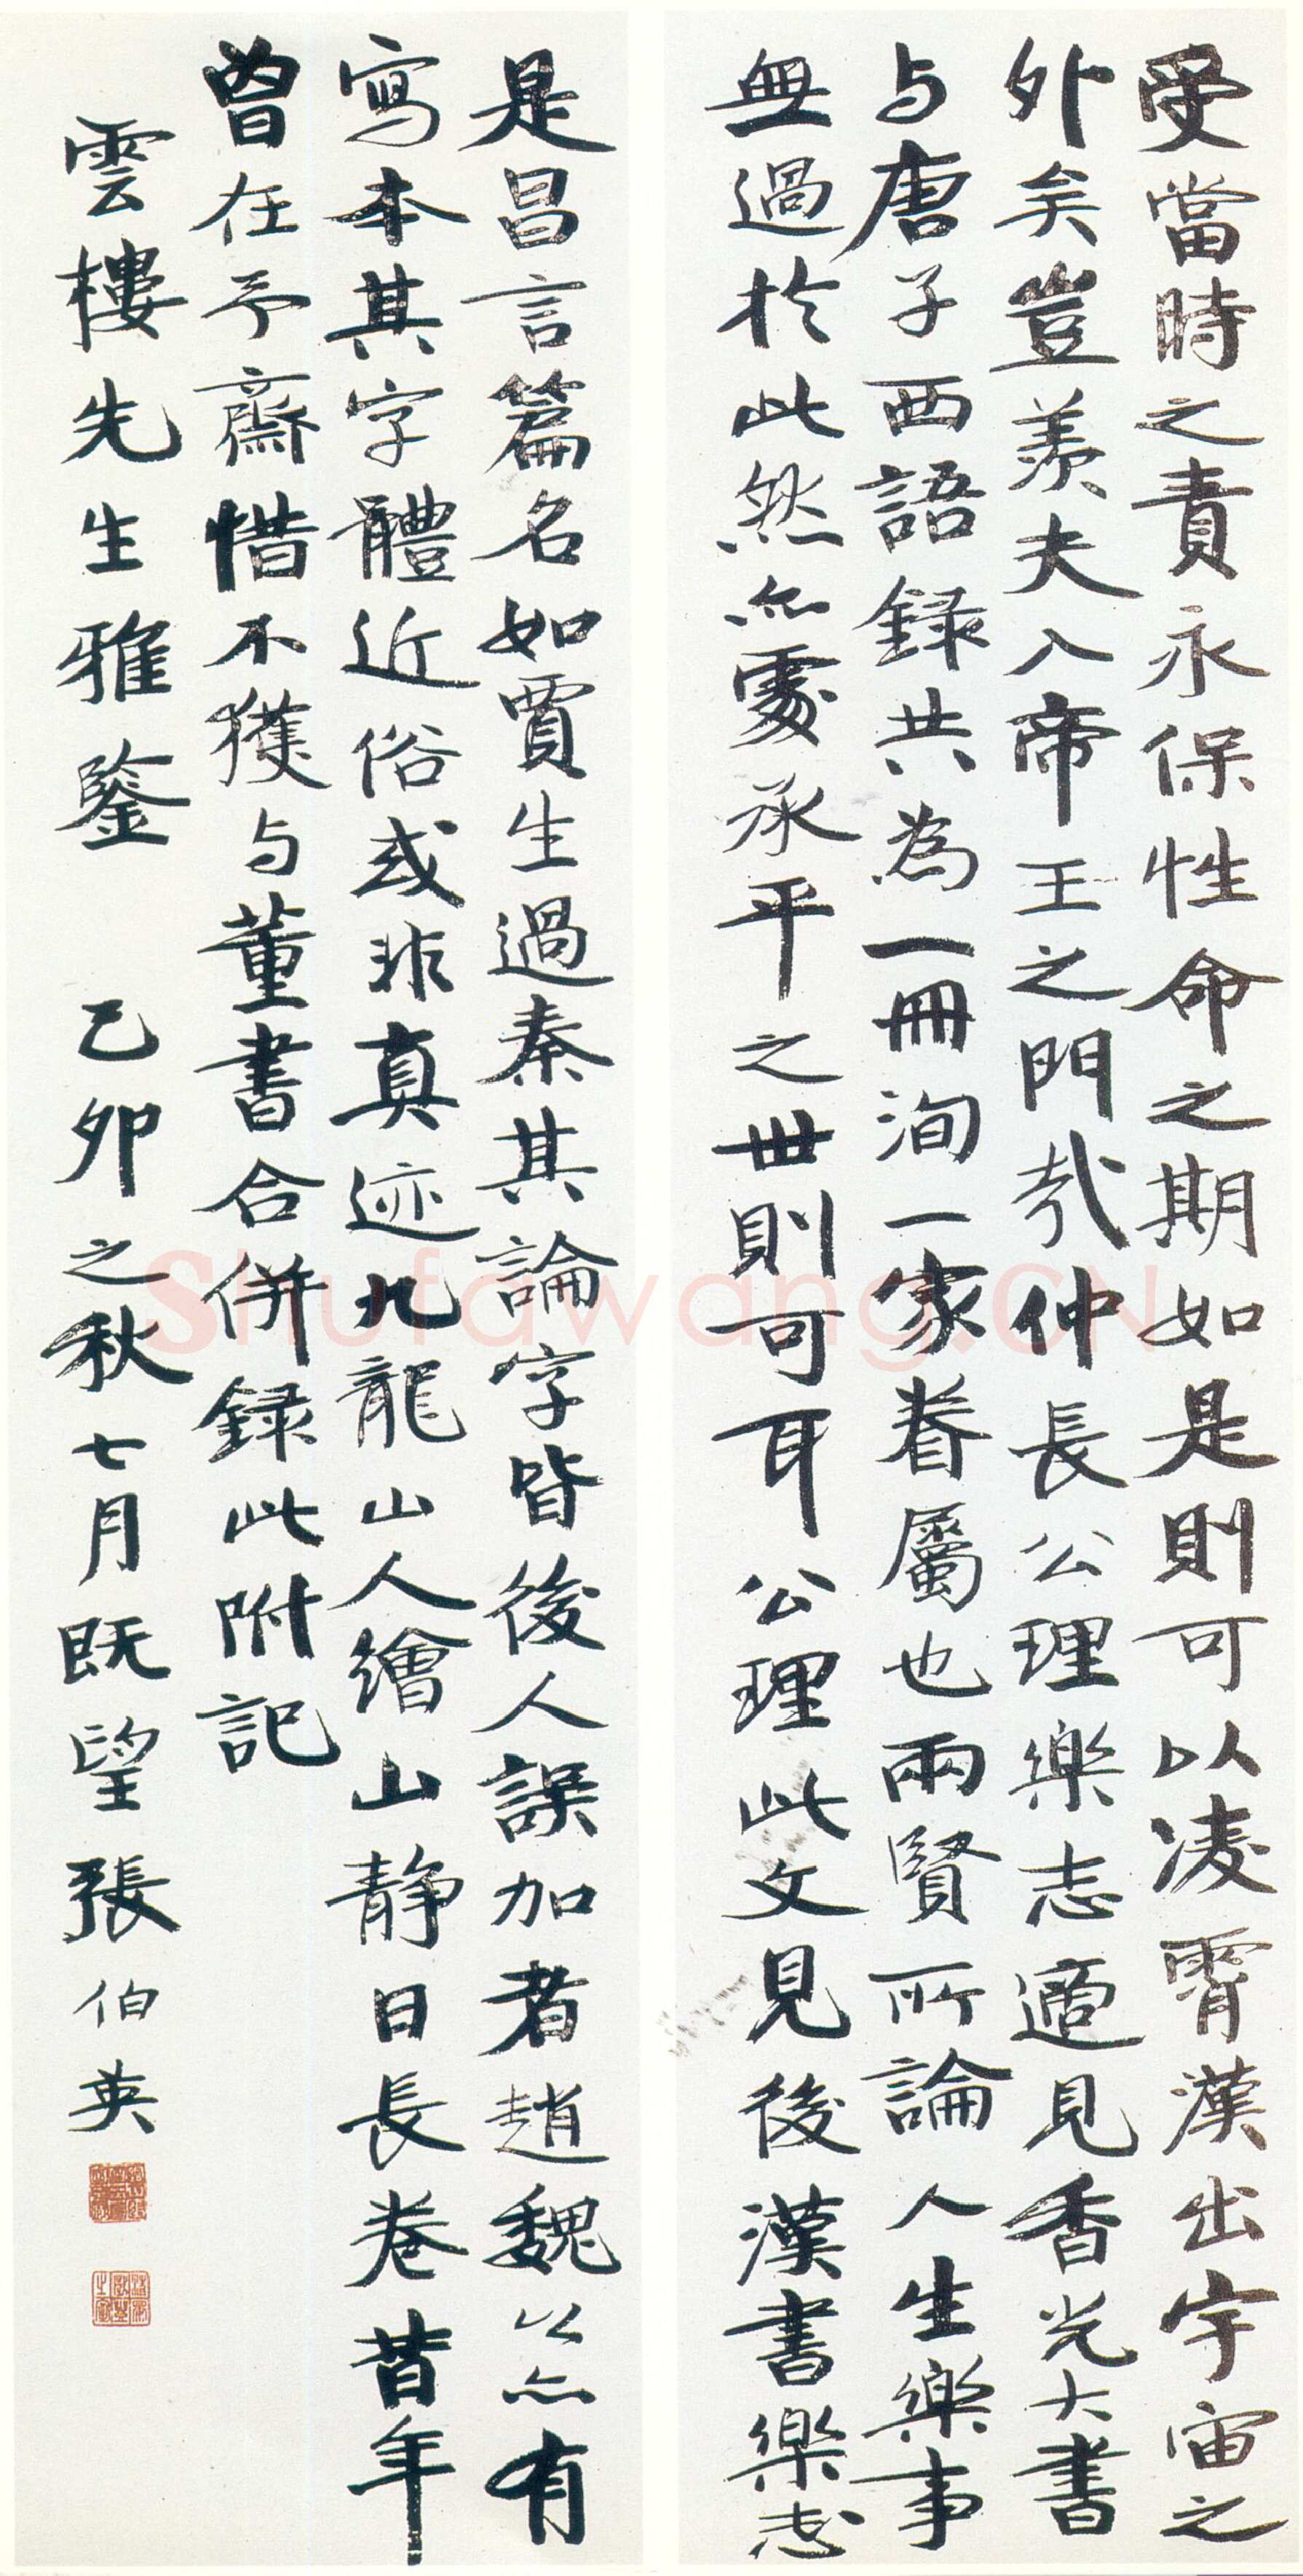 受當時之責永保性命之期如是則可以凌霄漢出宇宙之
外矣豈羨夫入帝王之門哉仲長公理樂志適見香光大書
与唐子西語錄共為一冊洵一家眷屬也兩賢所論人生樂事
無過於此然亦處承平之世則可耳公理此文見後漢書樂志
是昌言篇名如賈生過秦其論字皆後人誤加者趙魏公亦有
寫本其字體近俗或非真迹九龍山人繪山靜日長卷昔年
曾在予齋惜不獲与董書合併録此附記
雲樓先生雅鑒 己卯之秋七月既望張伯英
Shufawang.CN